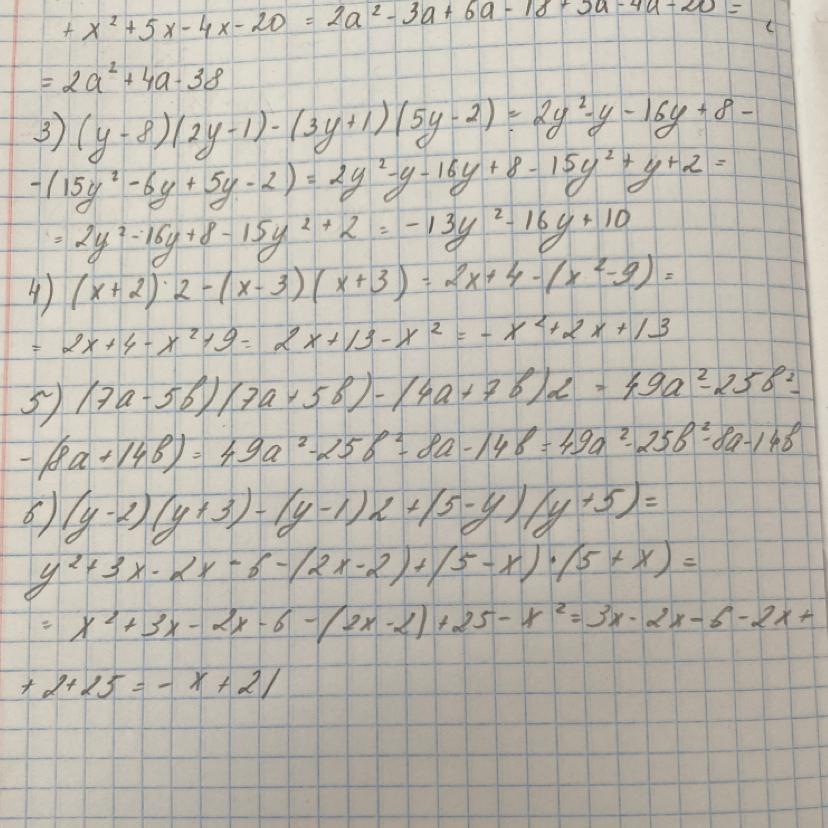 + x² + 5x - 4x - 20 = 2a² - 3a + 6a - 18 + 5a - 4a - 20 =
= 2a² + 4a - 38
3) (y - 8)(2y - 1) - (3y + 1)(5y - 2) = 2y² - y - 16y + 8 -
- (15y² - 6y + 5y - 2) = 2y² - y - 16y + 8 - 15y² + y + 2 =
= 2y² - 16y + 8 - 15y² + 2 = - 13y² - 16y + 10
4) (x + 2) · 2 - (x - 3)(x + 3) = 2x + 4 - (x² - 9) =
= 2x + 4 - x² + 9 = 2x + 13 - x² = - x² + 2x + 13
5) (7a - 5b)(7a + 5b) - (4a + 7b)2 = 49a² - 25b² -
- (8a + 14b) = 49a² - 25b² - 8a - 14b = 49a² - 25b² - 8a - 14b
6) (y - 2)(y + 3) - (y - 1)2 + (5 - y)(y + 5) =
y² + 3x - 2x - 6 - (2x - 2) + (5 - x) · (5 + x) =
= x² + 3x - 2x - 6 - (2x - 2) + 25 - x² = 3x - 2x - 6 - 2x +
+ 2 + 25 = - x + 21